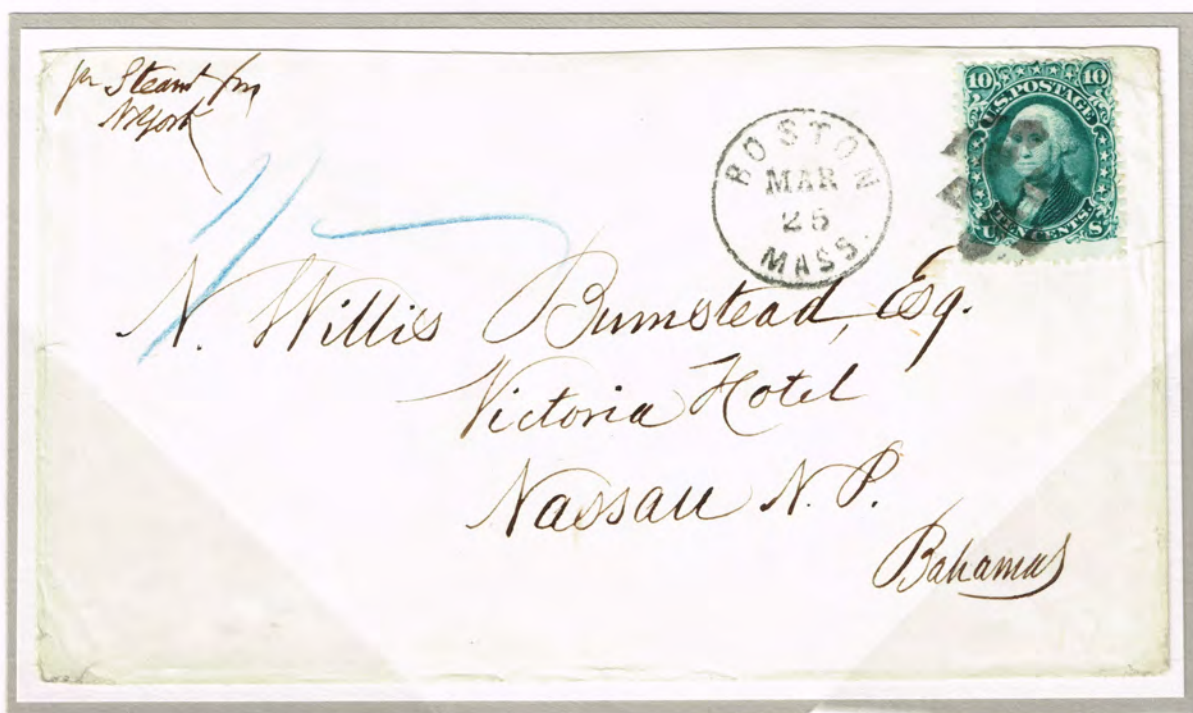 pr Steamr fm
N York
BOSTON
MAR
25
MASS.
10 10
U.S. POSTAGE
TEN CENTS.
U S
N. Willis Bumstead, Esq.
Victoria Hotel
Nassau N. P.
Bahamas